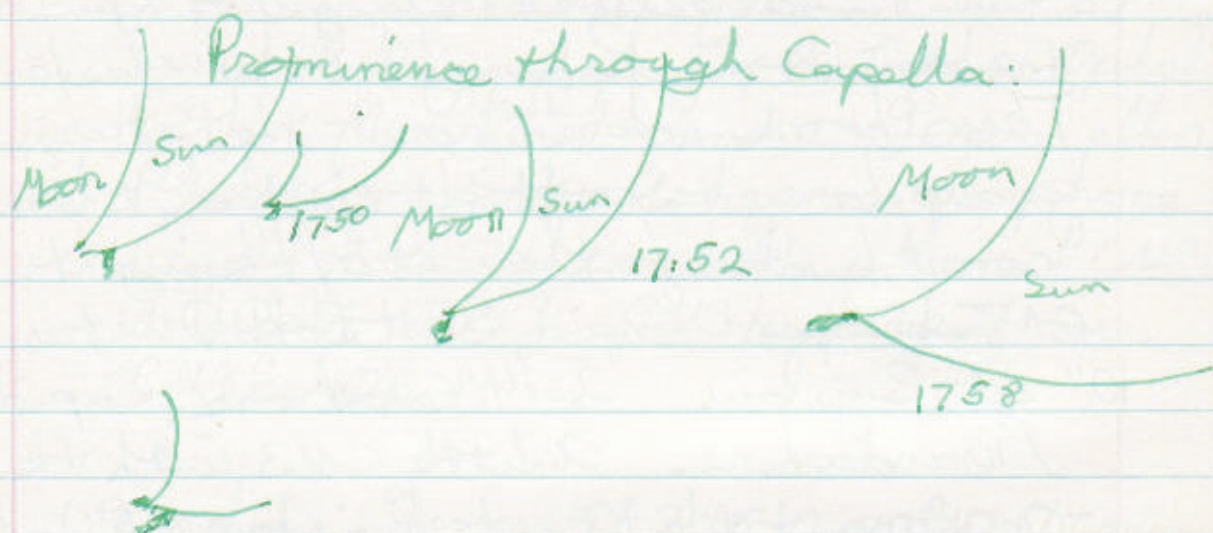 Prominence through Capella:
Moon Sun
1750
Moon Sun
17:52
Moon
Sun
1758